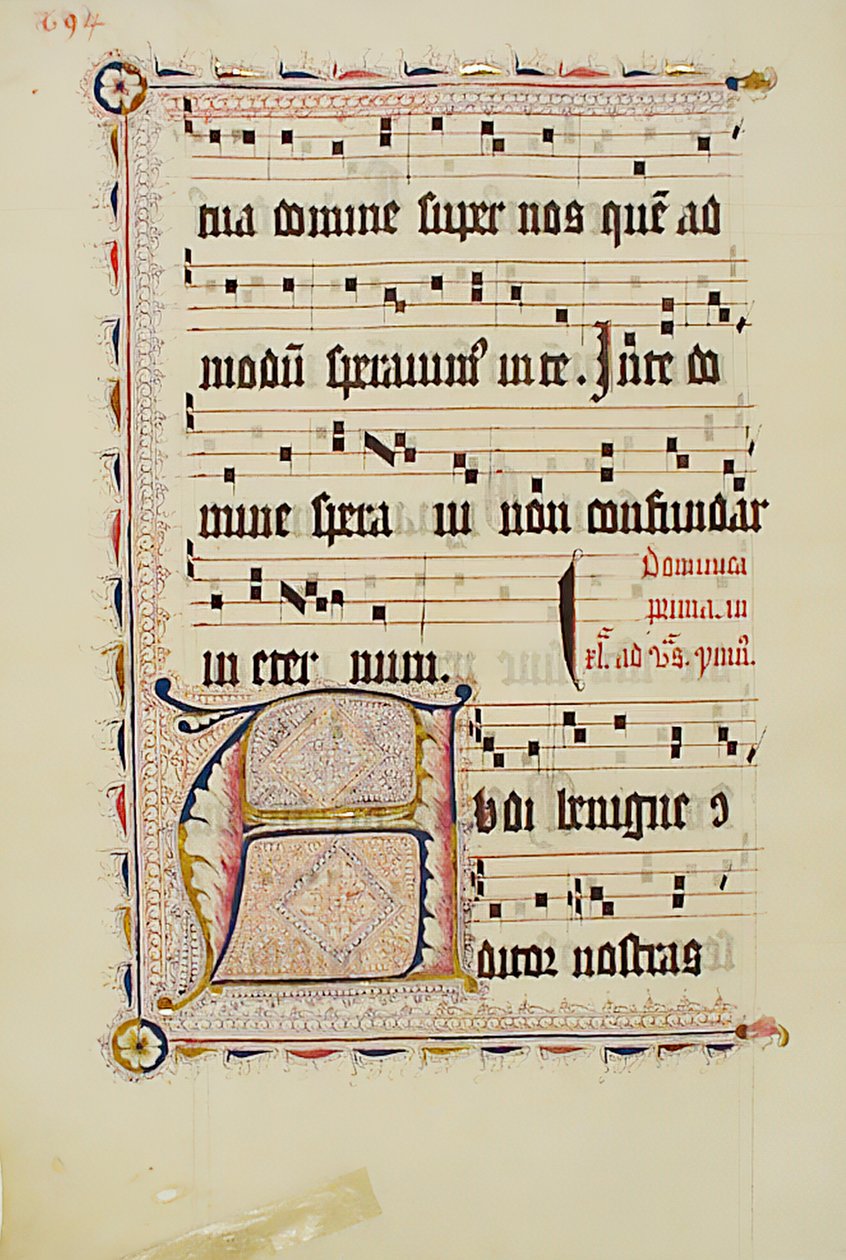 694
tua domine super nos quē ad
modū sperauim⁹ in te. In te do
mine spera ui nōn confundar
in eter num.
Dominica
prima in
xl.ᵃ ad vᵃ̄s. ymn⁹.
Audi benigne ↄ
ditor nostras